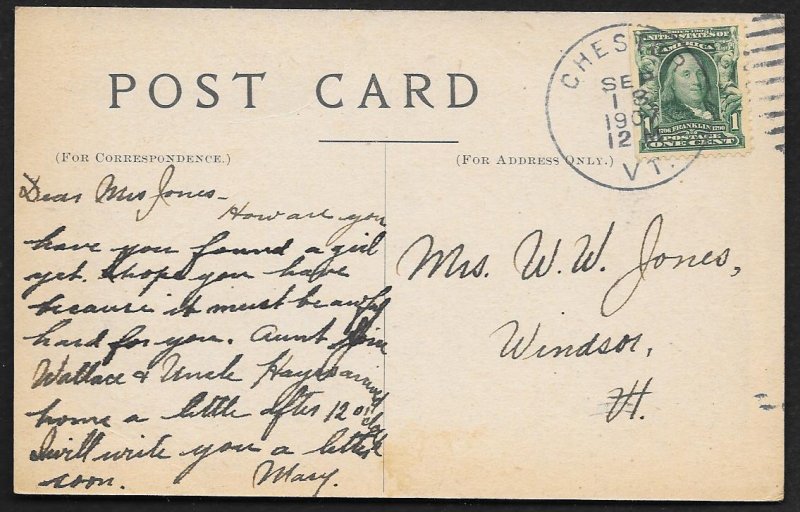 POST CARD
(FOR CORRESPONDENCE.)
(FOR ADDRESS ONLY.)
CHESTER
SEP
18
1907
12 M
VT.
UNITED STATES OF
AMERICA
1706 FRANKLIN 1790
POSTAGE
1 ONE CENT 1
Dear Mrs Jones -
How are you
have you found a girl
yet. I hope you have
because it must be awful
hard for you. Aunt
Wallace & Uncle
home a little after 12 o'clock
I will write you a letter
soon. Mary.
Mrs. W. W. Jones,
Windsor,
Vt.